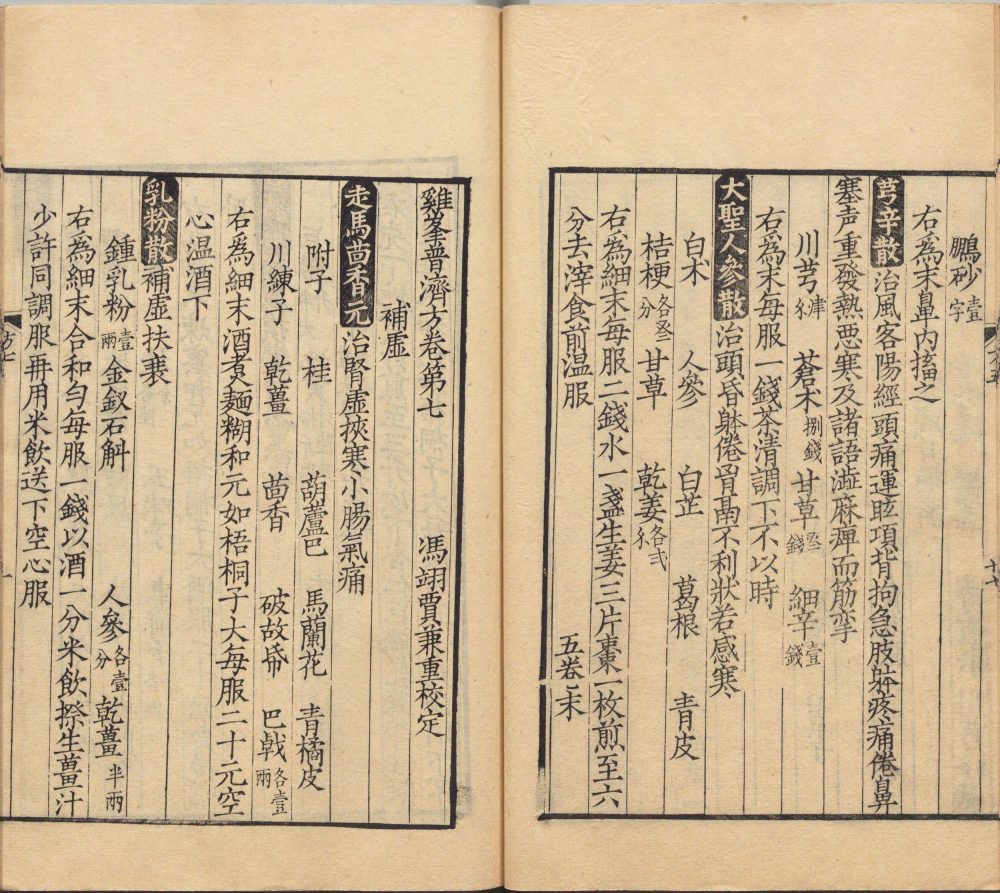 鵬砂壹字
右為末鼻內搐之
芎辛散治風客陽經頭痛運眩項背拘急肢躰疼痛倦鼻
塞声重發熱恶寒及諸語澁麻痺而筋攣
川芎 蒼术捌錢 甘草 細辛壹錢
右為末每服一錢茶清調下不以時
大聖人參散治頭昏躰倦胷鬲不利狀若感寒
白术 人參 白芷 葛根 青皮
桔梗 甘草 乾姜
右為細末每服二錢水一盞生姜三片棗一枚煎至六
分去滓食前温服
五卷末
雞峯普濟方卷第七 馮翊賈兼重校定
補虛
走馬茴香元治腎虛挾寒小腸氣痛
附子 桂 葫蘆巴 馬蘭花 青橘皮
川練子 乾薑 茴香 破故帋 巴戟各壹兩
右為細末酒煮麵糊和元如梧桐子大每服二十元空
心温酒下
乳粉散補虛扶衰
鍾乳粉壹兩 金釵石斛 人參各壹分 乾薑半兩
右為細末合和勻每服一錢以酒一分米飲搽生薑汁
少許同調服再用米飲送下空心服